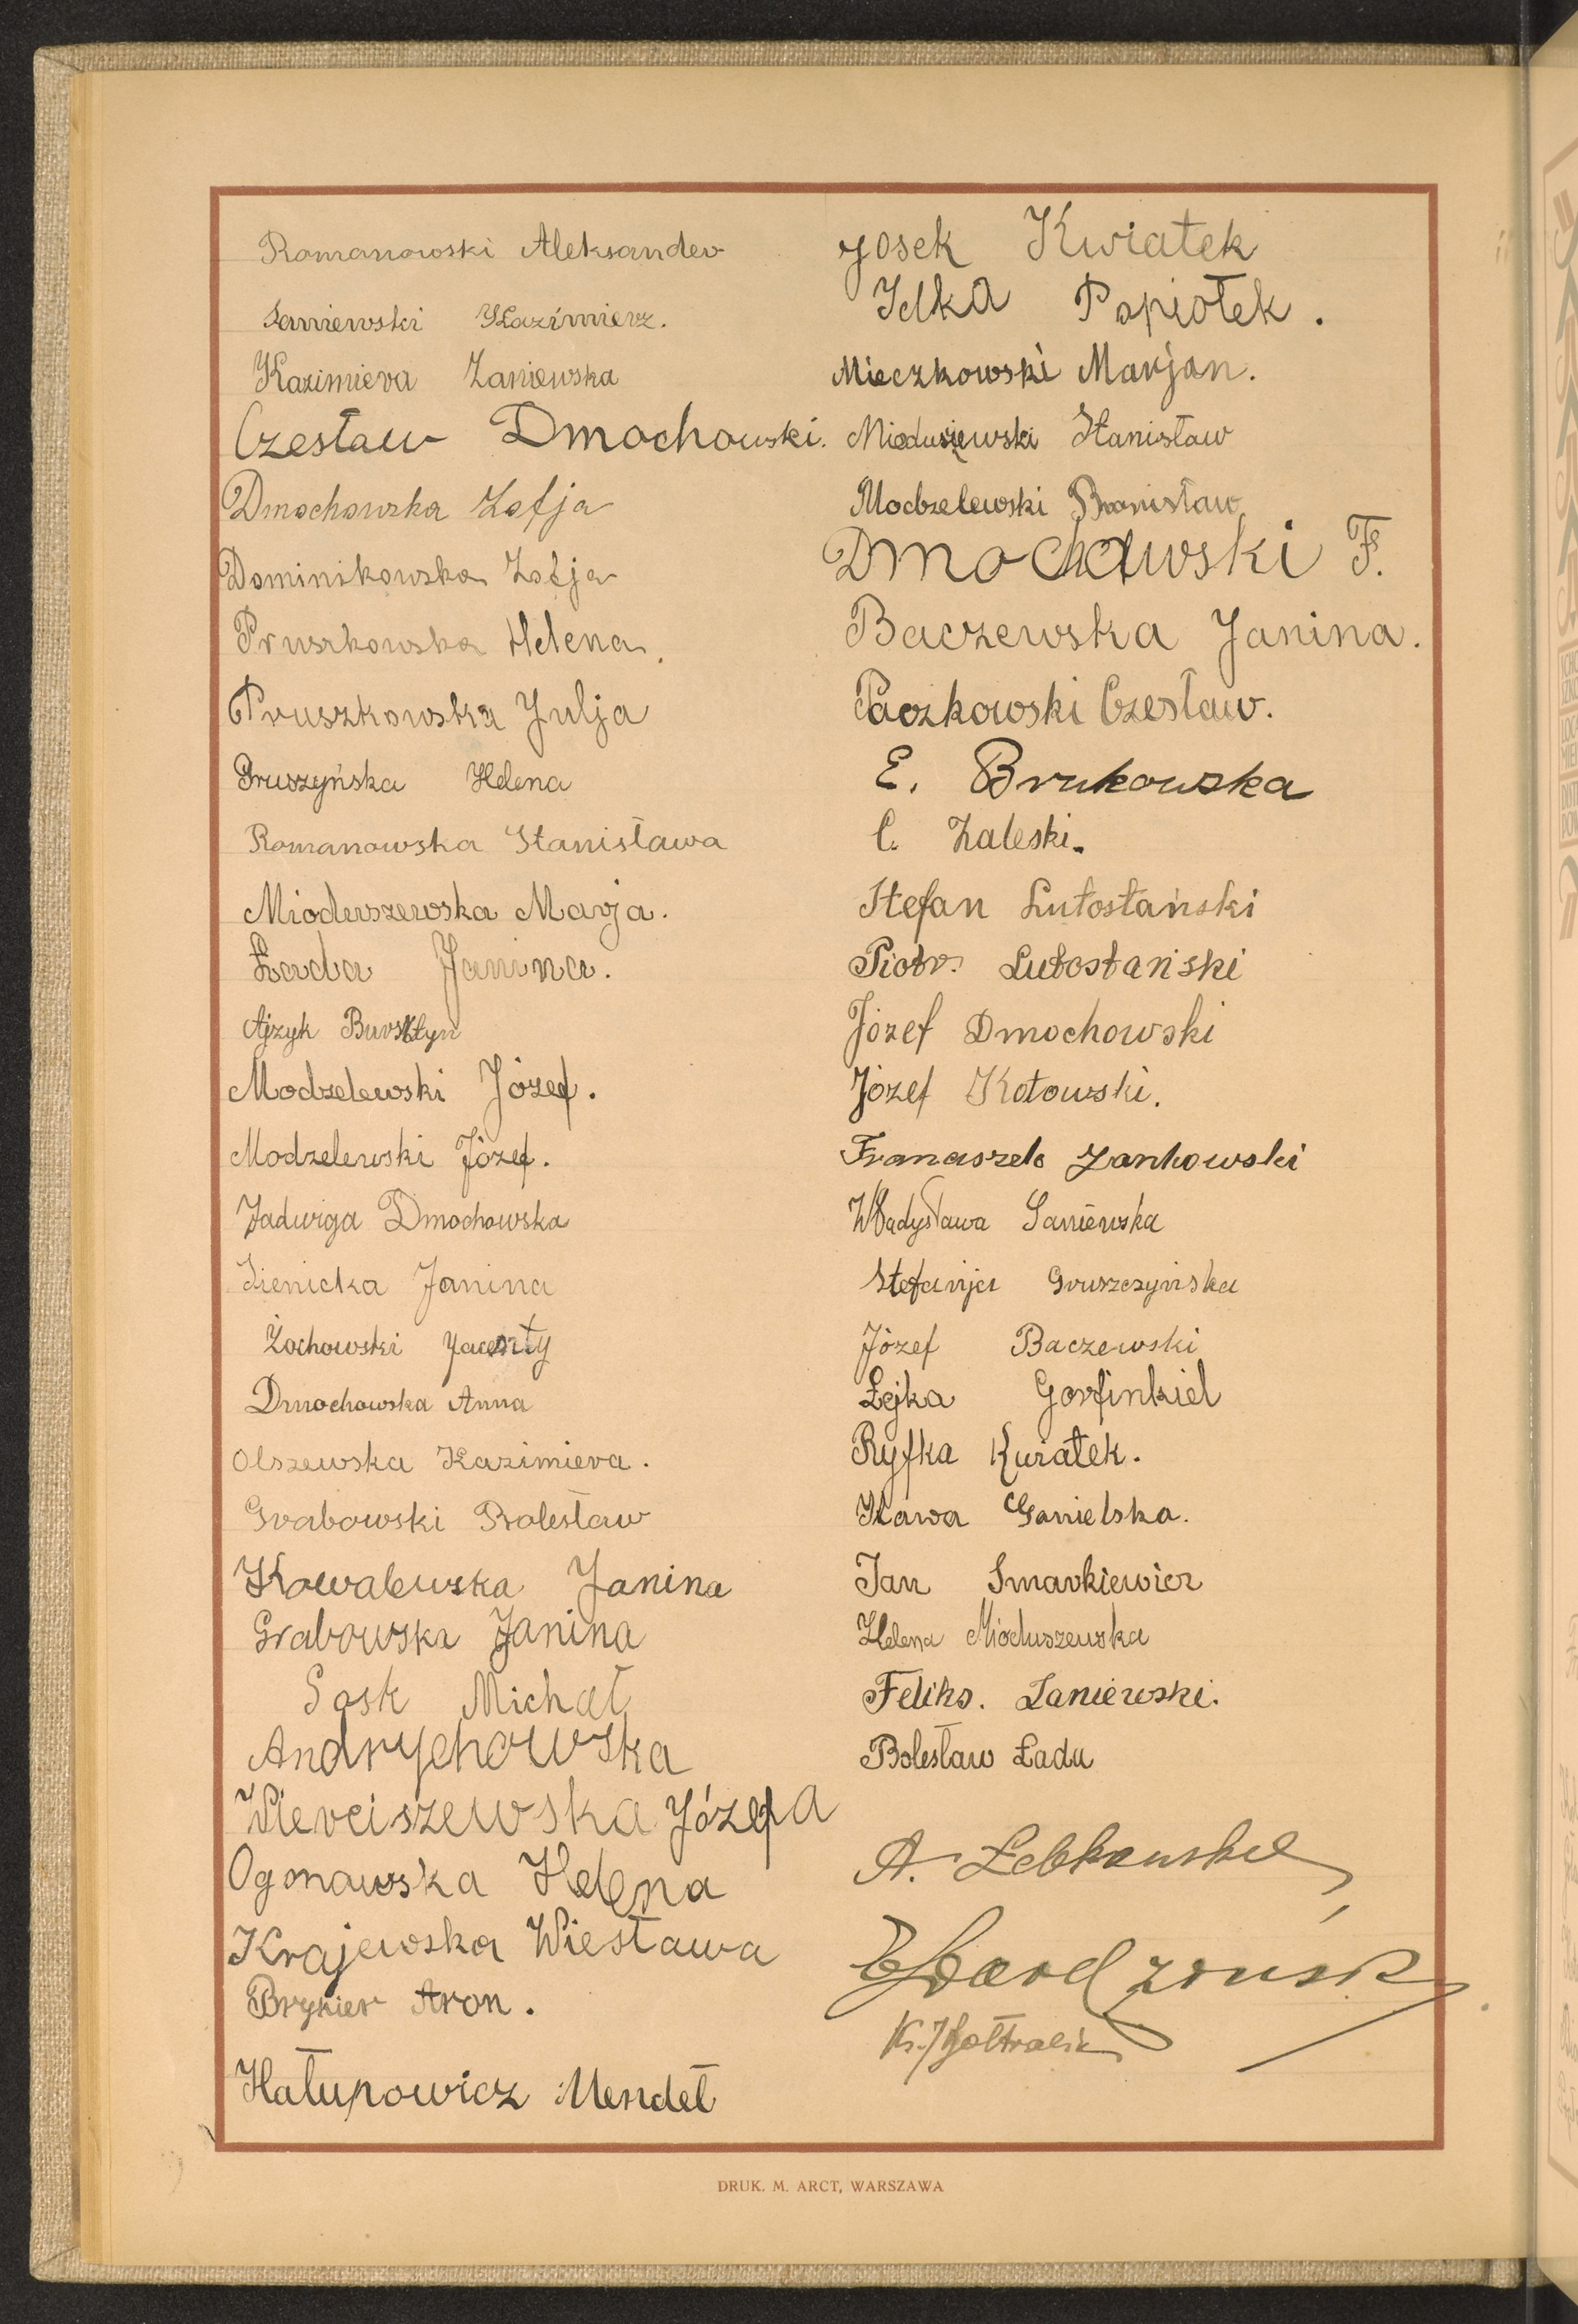 Romanowski Aleksander
Zaniewski Kazimierz.
Kazimiera Zaniewska
Czesław Dmochowski.
Dmochowska Zofja
Dominikowska Zofja
Pruszkowska Helena.
Pruszkowska Julja
Gruszyńska Helena
Romanowska Stanisława
Mioduszewska Marja.
Łada Janina.
Ajzyk Bursztyn
Modzelewski Józef.
Modzelewski Józef.
Jadwiga Dmochowska
Sienicka Janina
Żochowski Jacenty
Dmochowska Anna
Olszewska Kazimiera.
Grabowski Bolesław
Kowalewska Janina
Grabowska Janina
Sask Michał
Andrychowska
Wierciszewska Józefa
Ogonowska Helena
Krajewska Wiesława
Brykier Aron.
Hałupowicz Mendel
Josek Kwiatek
Idka Popiołek.
Mieczkowski Marjan.
Mioduszewski Stanisław
Modzelewski Bronisław
Dmochowski F.
Baczewska Janina.
Paczkowski Czesław.
E. Brukowska
C. Zaleski.
Stefan Lutostański
Piotr Lutostański
Józef Dmochowski
Józef Kotowski.
Franciszek Jankowski
Władysława Saniewska
Stefanija Gruszczyńska
Józef Baczewski
Łejka Gorfinkiel
Ryfka Kwiatek.
Hawa Ganielska.
Jan Smarkiewicz
Helena Mioduszewska
Feliks. Zaniewski.
Bolesław Łada
A. Łebkowska
DRUK. M. ARCT, WARSZAWA